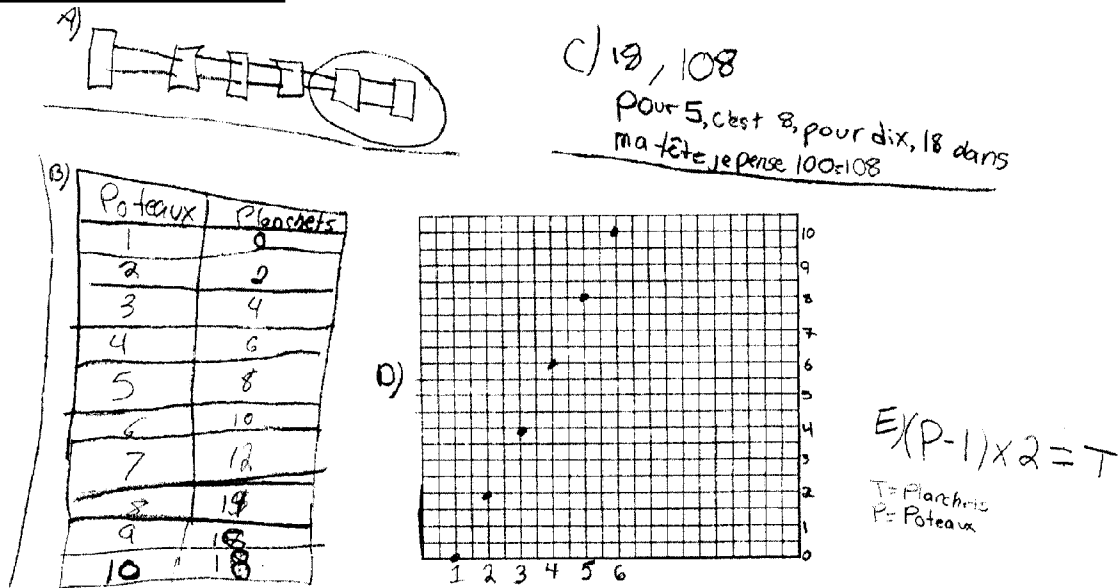 A)
C) 18, 108
pour 5, c'est 8, pour dix, 18 dans
ma tête, je pense 100=108
B)
Poteaux Planchets
1 0
2 2
3 4
4 6
5 8
6 10
7 12
8 14
9 16
10 18
D)
10
9
8
7
6
5
4
3
2
1
0
1 2 3 4 5 6
E) (P-1) x 2 = T
T= Planchets
P= Poteaux